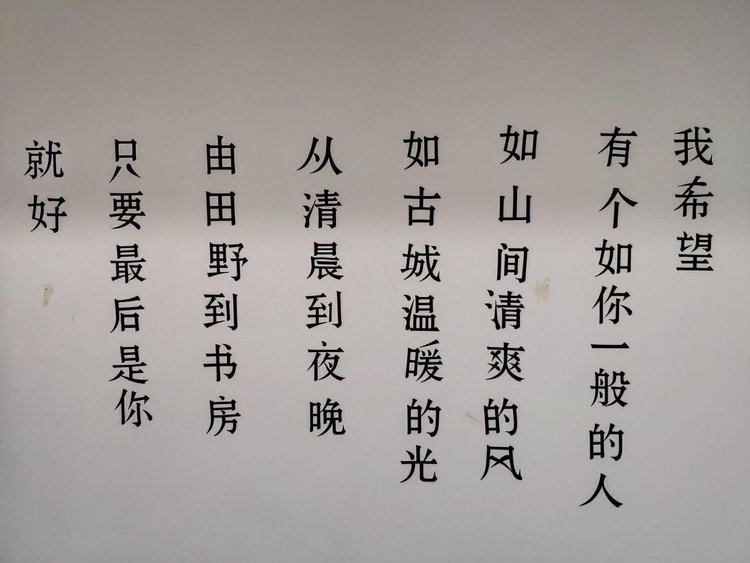 我希望
有个如你一般的人
如山间清爽的风
如古城温暖的光
从清晨到夜晚
由田野到书房
只要最后是你
就好